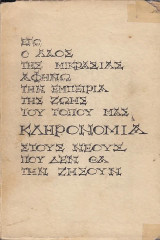 Ο ΛΑΟΣ
ΤΗΣ ΜΙΚΡΑΣΙΑΣ
ΑΦΗΝΩ
ΤΗΝ ΕΜΠΕΙΡΙΑ
ΤΗΣ ΖΩΗΣ
ΤΟΥ ΤΟΠΟΥ ΜΑΣ
ΚΛΗΡΟΝΟΜΙΑ
ΣΤΟΥΣ ΝΕΟΥΣ
ΠΟΥ ΔΕΝ ΘΑ
ΤΗΝ ΖΗΣΟΥΝ